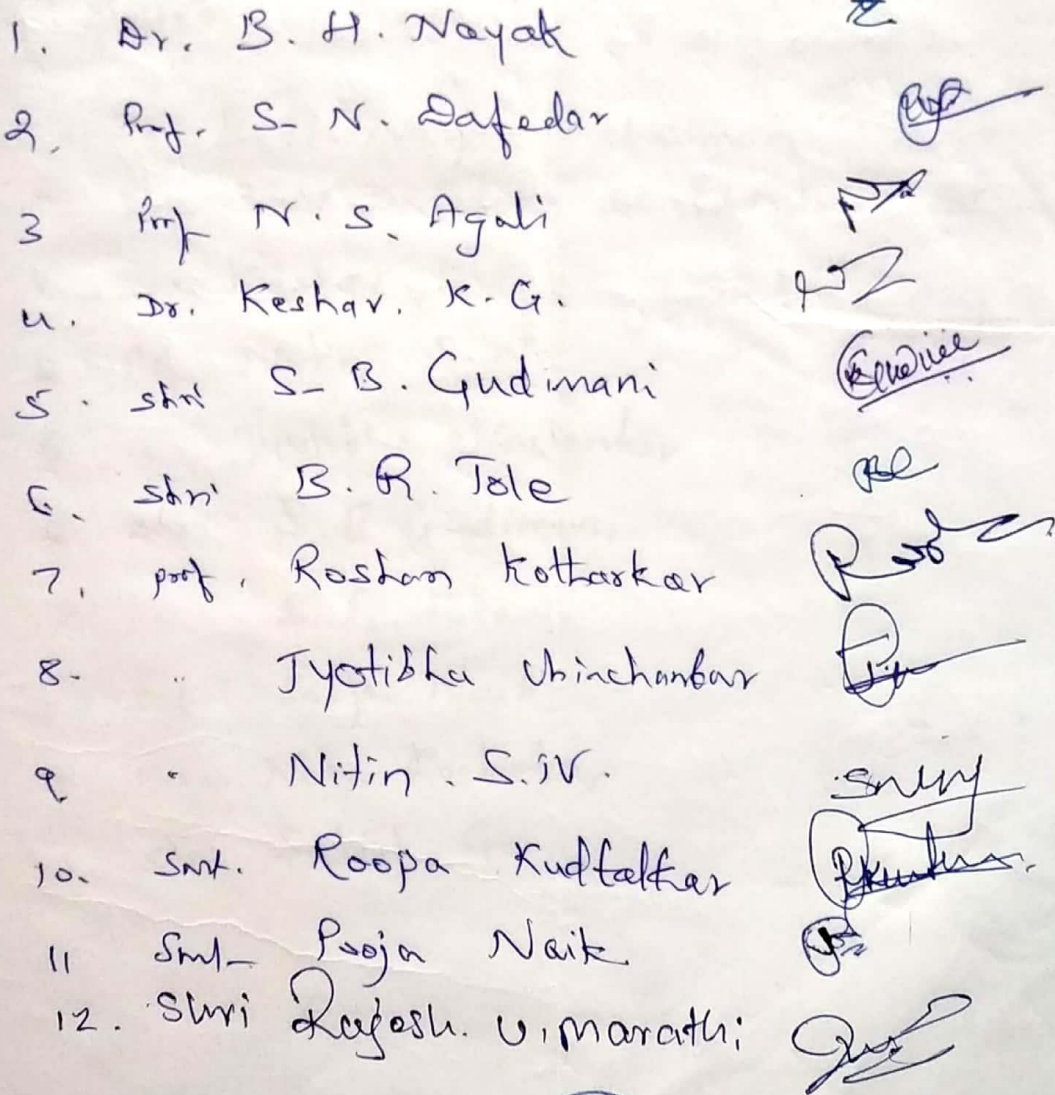 1. Dr. B. H. Nayak
2. Prof. S- N. Dafedar
3 Prof N. S. Agali
4. Dr. Keshav. K. G.
5. shri S- B. Gudimani
6. shri B. R. Tole
7. prof. Roshan Kotharkar
8- " Jyotibha
9 " Nitin. S.
10. Smt. Roopa
11 Smt- Pooja Naik
12. Shri Rajesh. V. Marathi